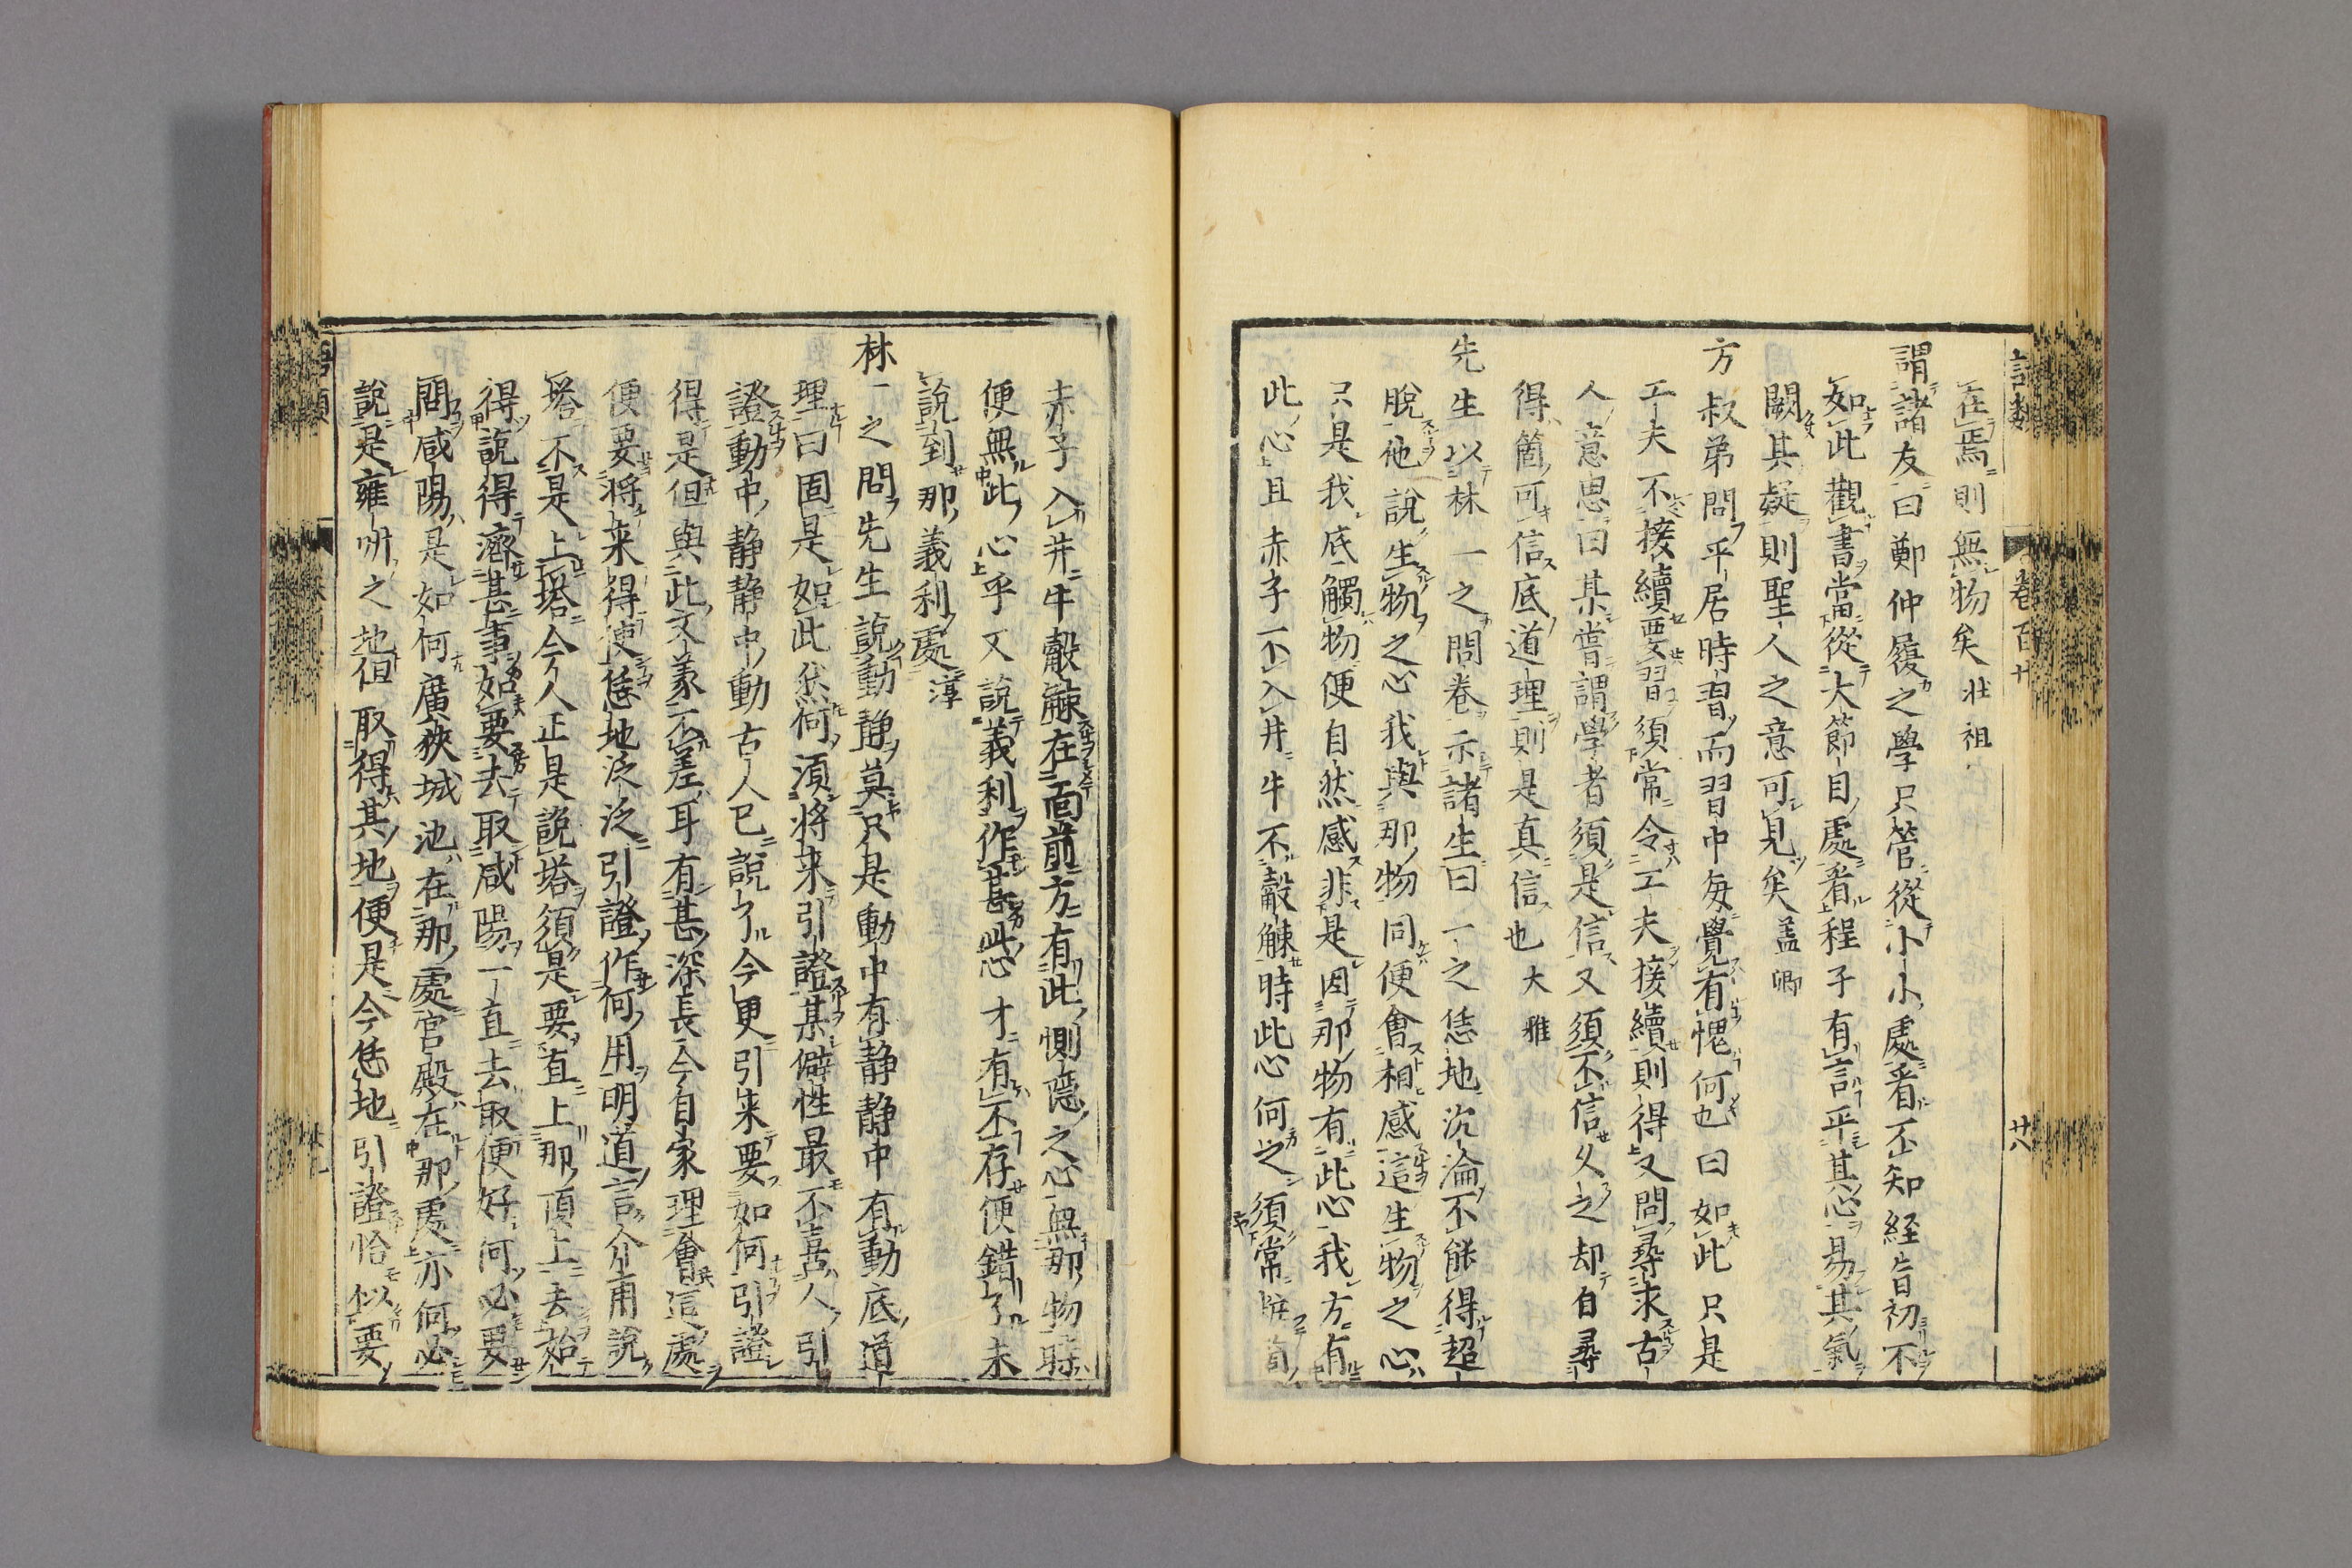 語類
卷百十
廿八
在焉則無物矣壮祖
謂諸友曰鄭仲履之學只管從小小處看不知経旨初不
如此觀書當從大節目處看程子有言平其心易其氣
闕其疑則聖人之意可見矣盖卿
方叔弟問平居時習而習中每覺有愧何也曰如此只是
工夫不接續要習須常令工夫接續則得又問尋求古
人意思曰某嘗謂學者須是信又須不信久之却自尋
得箇可信底道理則是真信也大雅
先生以林一之問卷示諸生曰一之恁地沉淪不能得超
脫他說生物之心我與那物同便會相感這生物之心
只是我底觸物便自然感非是因那物有此心我方有
此心且赤子不入井牛不觳觫時此心何之須常
赤子入井牛觳觫在面前方有此惻隱之心無那物時
便無此心乎又說義利作甚此心才有不存便錯了未
說到那義利處淳
林一之問先生說動静莫只是動中有静静中有動底道
理曰固是如此然何須將来引證某僻性最不喜人引
證動中静静中動古人已說了今更引来要如何引證
得是但與此文義不差耳有甚深長今自家理會這處
便要將来得使恁地泛泛引證作何用明道言介甫說
塔不是上塔今人正是說塔須是要直上那頂上去始
得說得濟甚事如要去取咸陽一直去取便好何必要
問咸陽是如何廣狹城池在那處宮殿在那處亦何必
說是雍州之地但取得其地便是今恁地引證恰似要
語類